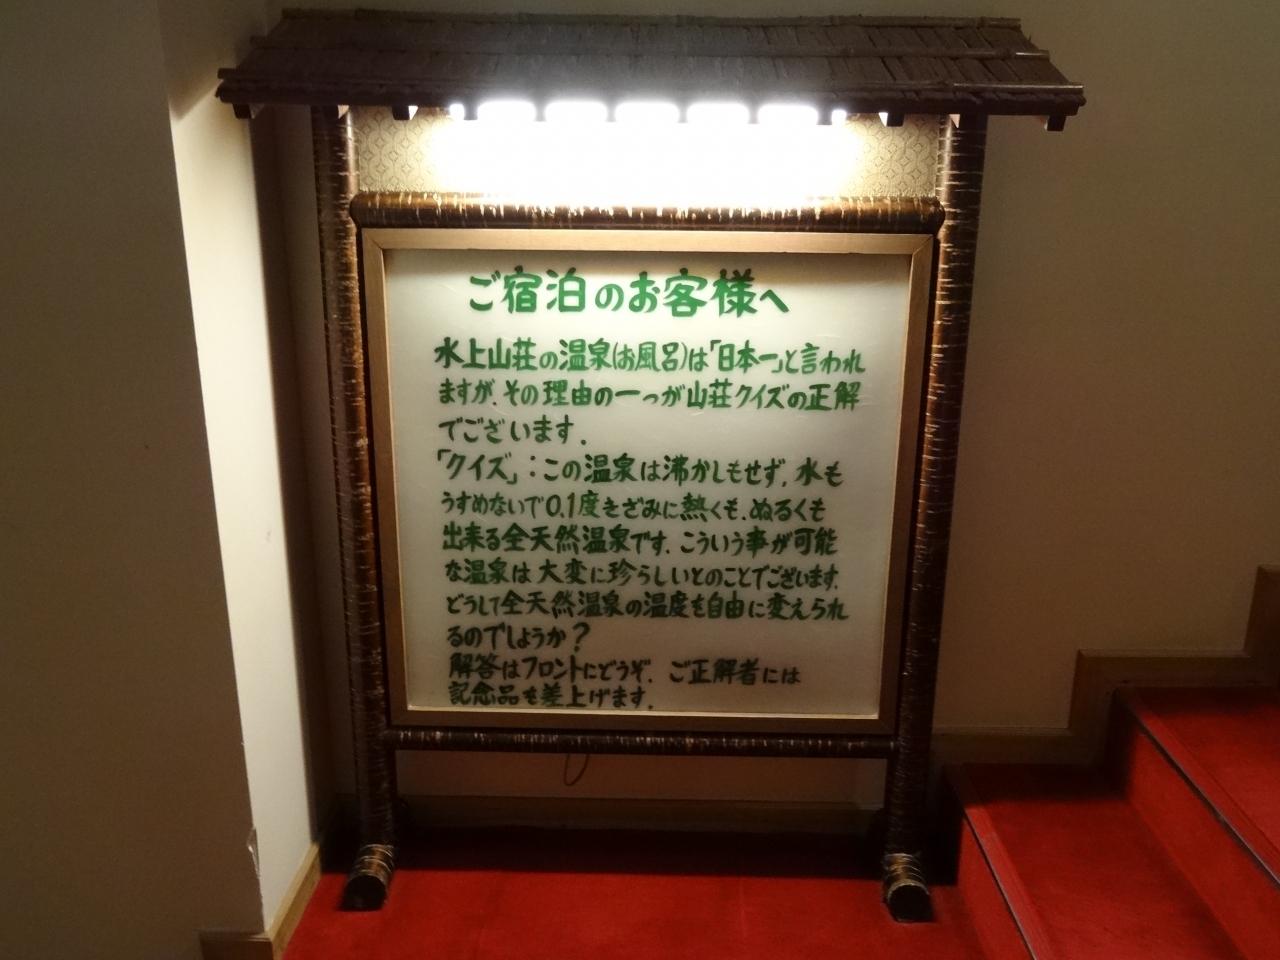 ご宿泊のお客様へ
水上山荘の温泉(お風呂)は「日本一」と言われ
ますが、その理由の一っが山荘クイズの正解
でございます。
「クイズ」:この温泉は沸かしもせず、水も
うすめないで0.1度きざみに熱くも、ぬるくも
出来る全天然温泉です。こういう事が可能
な温泉は大変に珍らしいとのことでございます。
どうして全天然温泉の温度を自由に変えられ
るのでしょうか?
解答はフロントにどうぞ。ご正解者には
記念品を差上げます。